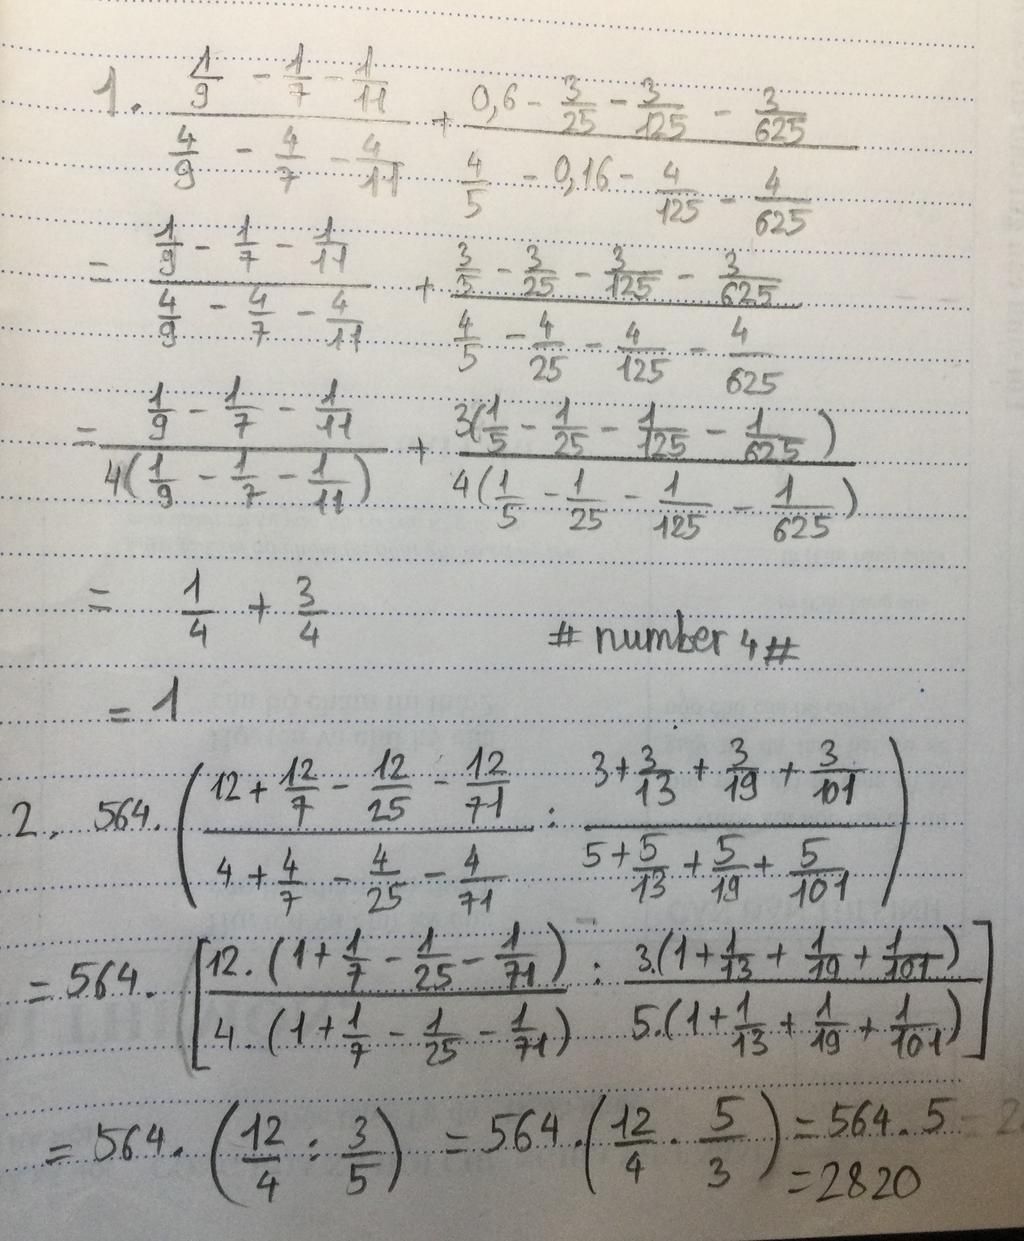 1. (1/9 - 1/7 - 1/11)/(4/9 - 4/7 - 4/11) + (0,6 - 3/25 - 3/125 - 3/625)/(4/5 - 0,16 - 4/125 - 4/625)
= (1/9 - 1/7 - 1/11)/(4/9 - 4/7 - 4/11) + (3/5 - 3/25 - 3/125 - 3/625)/(4/5 - 4/25 - 4/125 - 4/625)
= (1/9 - 1/7 - 1/11)/(4(1/9 - 1/7 - 1/11)) + (3(1/5 - 1/25 - 1/125 - 1/625))/(4(1/5 - 1/25 - 1/125 - 1/625))
= 1/4 + 3/4
# number 4 #
= 1
2. 564. ((12 + 12/7 - 12/25 - 12/71)/(4 + 4/7 - 4/25 - 4/71) : (3 + 3/13 + 3/19 + 3/101)/(5 + 5/13 + 5/19 + 5/101))
= 564. [(12. (1 + 1/7 - 1/25 - 1/71))/(4. (1 + 1/7 - 1/25 - 1/71)) : (3.(1 + 1/13 + 1/19 + 1/101))/(5.(1 + 1/13 + 1/19 + 1/101))]
= 564. (12/4 : 3/5) = 564. (12/4 . 5/3) = 564. 5
= 2820